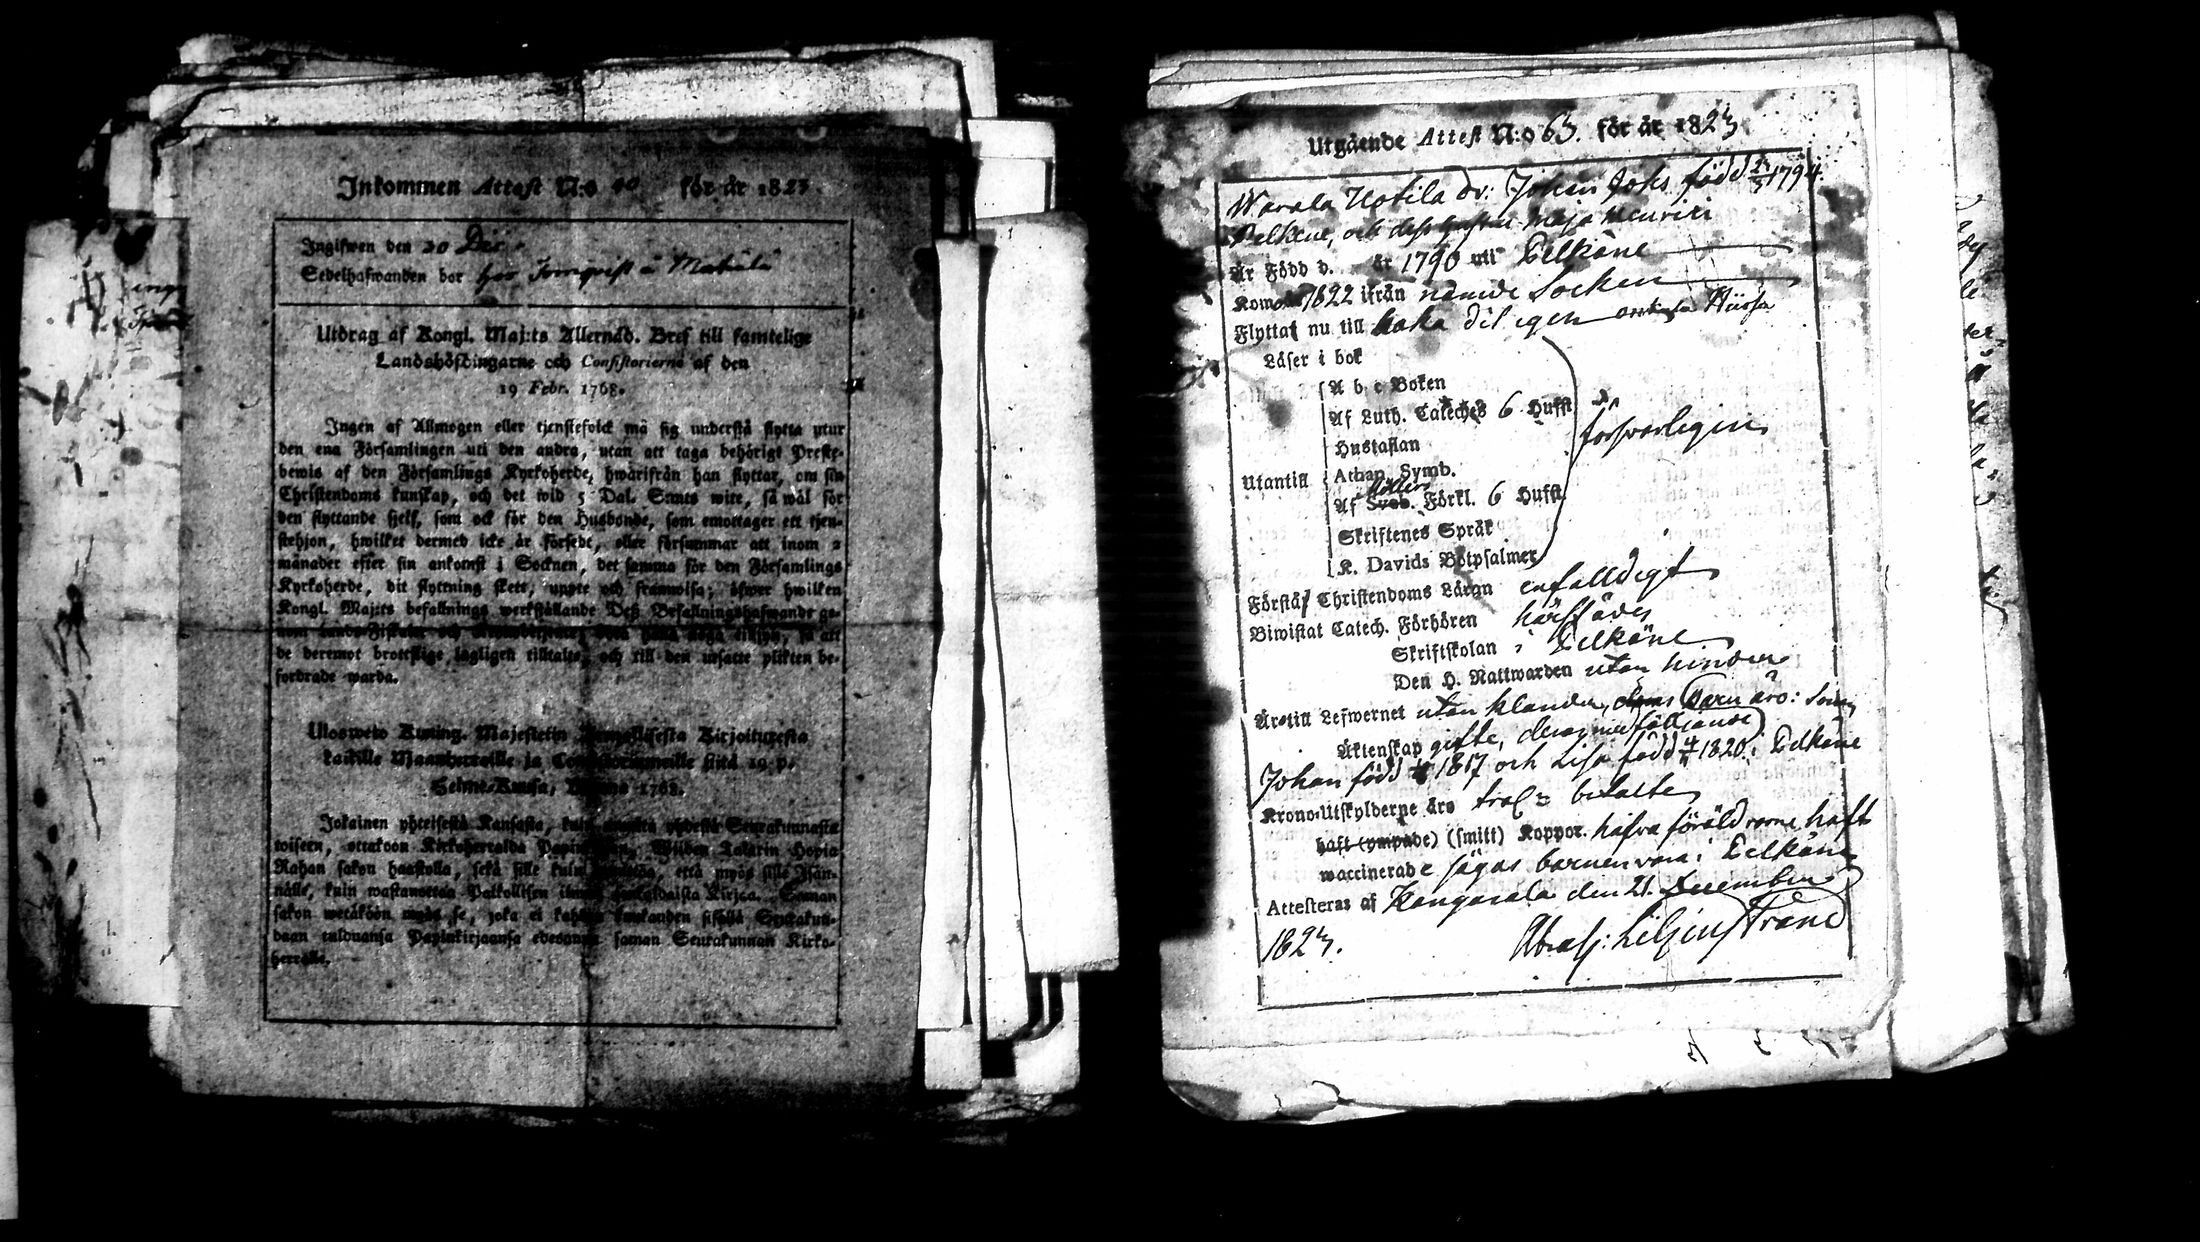 Inkommen Attest N:o 40 för år 1823.
Ingifwen den 30 Dec
Sedelhafwanden bor hos
Utdrag af Kongl. Maj:ts Allernåd. Bref till samtelige
Landshöfdingarne och Consistorierne af den
19 Febr. 1768.
Ingen af Allmogen eller tjenstefolck må sig understå flytta utur
den ena Församlingen uti den andra, utan att taga behörigt Preste-
bewis af den Församlings Kyrkoherde, hwarifrån han flyttar, om sin
Christendoms kunskap, och det wid 5 Dal. Smts wite, så wäl för
den flyttande sjelf, som ock för den Husbonde, som emottager ett tjen-
stehjon, hwilket dermed icke är försedt, eller försummar att inom 2
månader efter sin ankomst i Socknen, det samma för den Församlings
Kyrkoherde, dit flyttning skett, uppte och framwisa; öfwer hwilken
Kongl. Maj:ts befallnings werkställande Deß Befallningshafwande ge-
nom Lands-Fiskaler och
de deremot brottslige lagligen tilltalte, och till den utsatte plikten be-
fordrade warda.
Uloswetо Kuning. Majestetin Armollisesta Kirjoituxesta
kaikille Maanherroille ja Consistoriumeille siitä 19 p.
Helme-Kuussa, Wuonna 1768.
Jokainen yhteisestä Kansasta, kuin Seurakunnasta
toiseen, ottakoon Kirkoherralda
Rahan sakon haastolla, sekä sille kuin että myös sille Isän-
nälle, kuin wastanottaa Palkollisen ilman Kirjaa. Saman
sakon wetäköön myös se, joka ei kahden kuukauden sisällä Seurakun-
daan tulduansa Papinkirjaansa edesanna saman Seurakunnan Kirko-
herralle.
Utgående Attest N:o 63. för år 1823.
Warala Uotila Dr: Johan Johs född 1794.
Pelkene, och deß hustru Maja Henrici
Är Född d. år 1790 uti Pelkäne
Kom 1822 ifrån nämde Socken
Flyttat nu till baka dit igen
Läser i bok
A b c Boken
Af Luth. Cateches 6 Hufst
Hustaflan
försvarligen
Utantill
Athan. Symb.
Af Sveb. Förkl. 6 Hufst.
Skriftenes Språk
K. Davids Botpsalmer
Förstår Christendoms Läran enfalldigt
Biwistat Catech. Förhören härstädes
Skriftskolan i Pelkäne
Den H. Nattwarden utan hinder
Äro till Lefwernet utan klander, deras Barn äro: Sonen
Äktenskap gifte,
Johan född 1817 och Lisa född 1820 i Pelkäne
Krono-Utskylderne äro betalte
haft (ympade) (smitt) Koppor. hafva föräldrarne haft
waccinerade sägas barnen vara i Pelkäne
Attesteras af Kangasala den 21. December
1823. Abrah: Liljenstrand